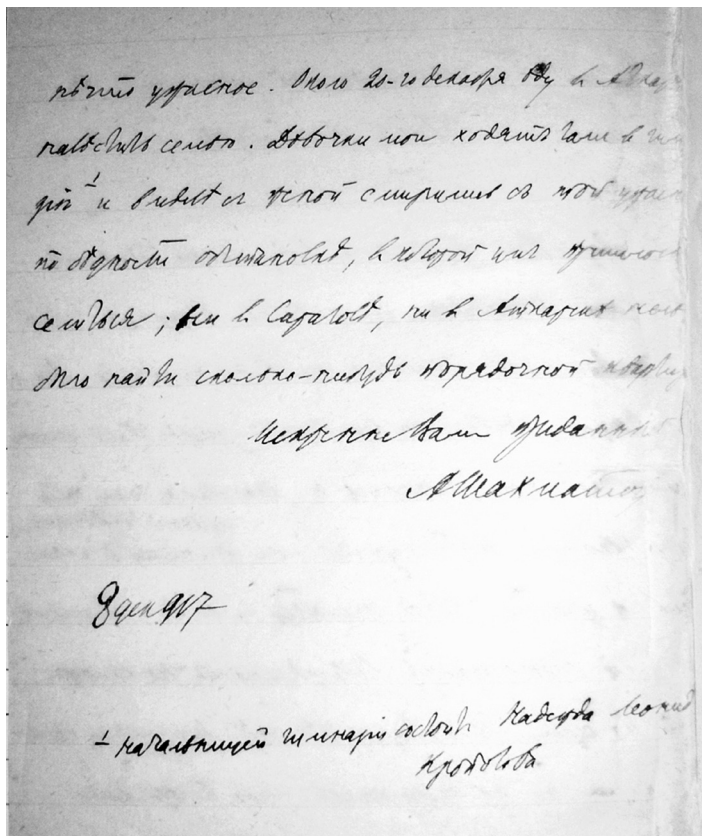 нѣчто ужасное. Около 20-го декабря ѣду в Аткар
навѣстить семью. Дѣвочки мои ходятъ там в гим
¹ и с женой смирились съ этой ужасн
по бѣдности обстановкѣ, в которой им пришлось
селиться; ни в Саратовѣ, ни в Аткарске нельзя
было найти сколько-нибудь порядочной квартиры
Искренне Вам преданный
АШахматов
8 дек 917
¹ начальницей гимназіи состоитъ Надежда Леонид
Кротова